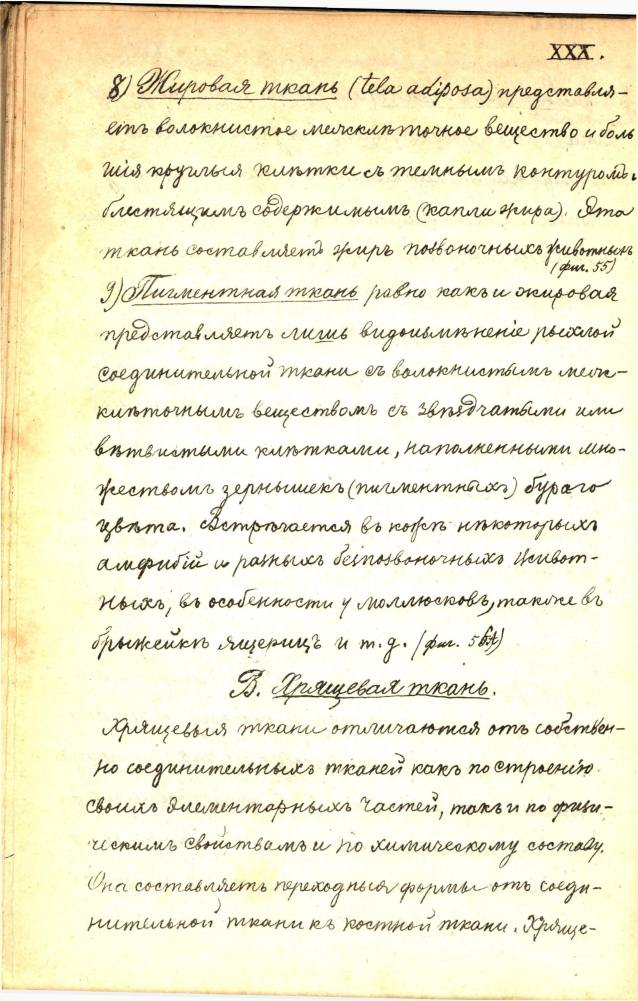 XXX.
8) Жировая ткань (tela adiposa) представля-
етъ волокнистое межклѣточное вещество и боль
шія круглыя клѣтки съ темнымъ контуромъ и
блестящимъ содержимымъ (капли жира). Эта
ткань составляетъ жиръ позвоночныхъ животныхъ
(фиг. 55)
9) Пигментная ткань равно какъ и жировая
представляетъ лишь видоизмѣненіе рыхлой
соединительной ткани съ волокнистымъ меж-
клѣточнымъ веществомъ съ звѣздчатыми или
вѣтвистыми клѣтками, наполненными мно-
жествомъ зернышекъ (пигментныхъ) бураго
цвѣта. Встрѣчается въ кожѣ нѣкоторыхъ
амфибій и разныхъ безпозвоночныхъ живот-
ныхъ, въ особенности у моллюсковъ, также въ
брыжейкѣ ящерицъ и т. д. (фиг. 56)
В. Хрящевая ткань.
Хрящевыя ткани отличаются отъ собствен-
но соединительныхъ тканей какъ по строенію
своихъ элементарныхъ частей, такъ и по физи-
ческимъ свойствамъ и по химическому составу.
Она составляетъ переходныя формы отъ соеди-
нительной ткани къ костной ткани. Хряще-